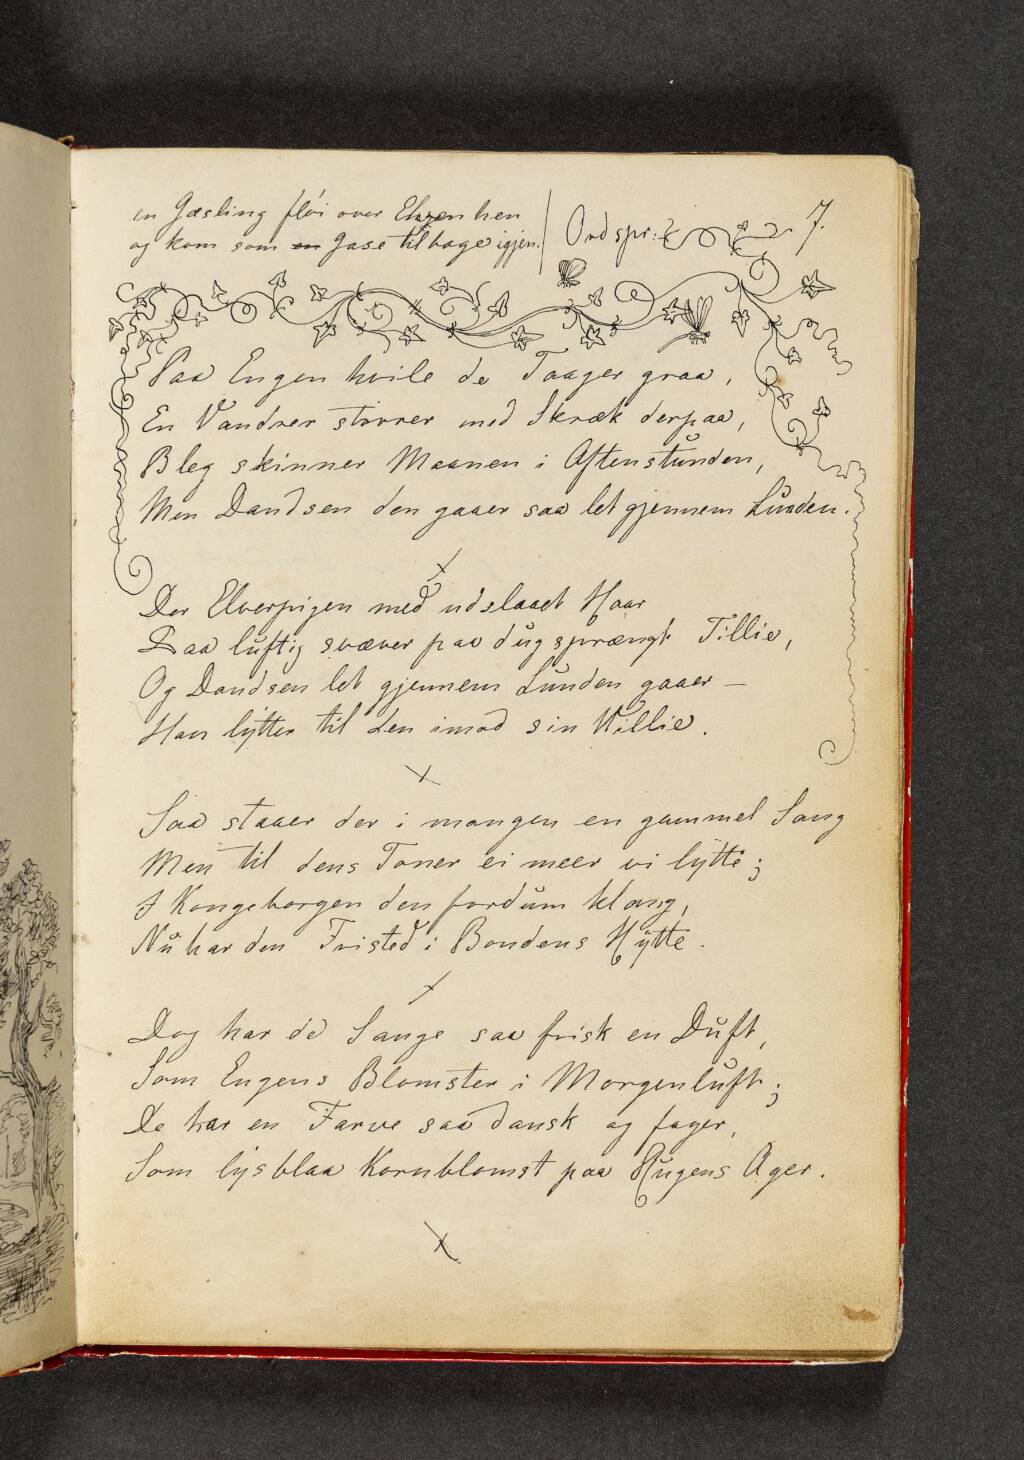 en Gæsling fløi over Engen hen
og kom som en Gase tilbage igjen.
Ordspr:
7.
Paa Engen hvile de Taager graa,
En Vandrer stirrer med Skræk derpaa,
Bleg skinner Maanen i Aftenstunden,
Men Dandsen den gaaer saa let gjennem Lunden.
Der Elverpigen med udslaaet Haar
Saa luftig svæver paa dugsprængt Tillie,
Og Dandsen let gjennem Lunden gaaer —
Han lytter til den imod sin Willie.
Saa staaer der i mangen en gammel Sang
Men til dens Toner ei meer vi lytte;
I Kongeborgen den fordum klang,
Nu har den Fristed i Bondens Hytte.
Dog har de Sange saa frisk en Duft,
Som Engens Blomster i Morgenluft;
De har en Farve saa dansk og fager,
Som lysblaa Kornblomst paa Rugens Ager.